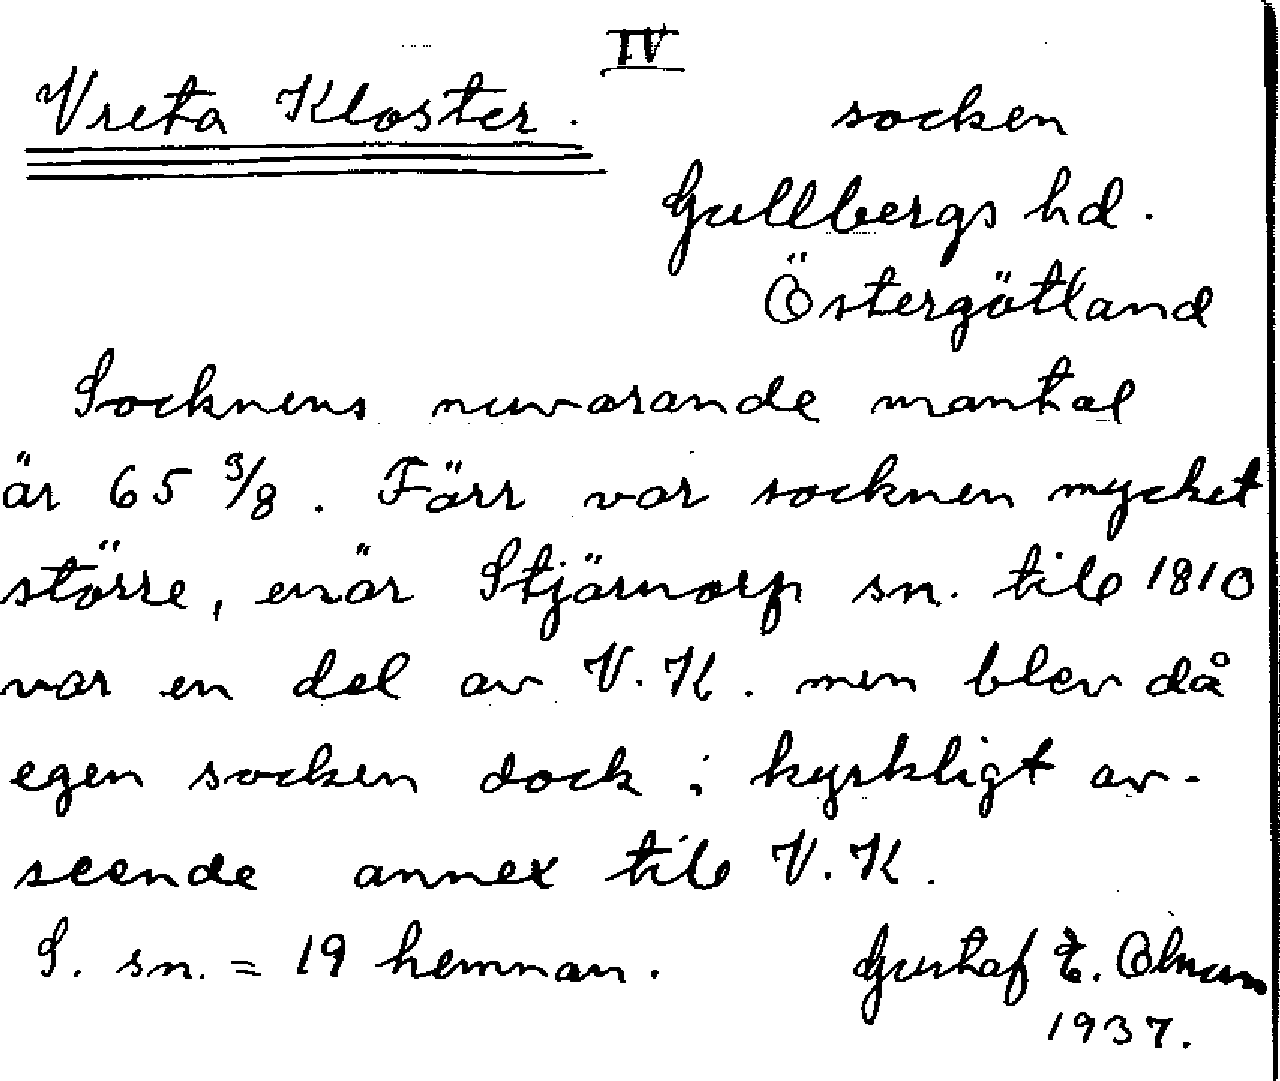 IV
Vreta Kloster.
socken
Gullbergs hd.
Östergötland
Socknens nuvarande mantal
är 65 3/8. Förr var socknen mycket
större, enär Stjärnorp sn. till 1810
var en del av V.K. men blev då
egen socken dock i kyrkligt av-
seende annex till V.K.
S. sn. = 19 hemman.
Gustaf E.
1937.